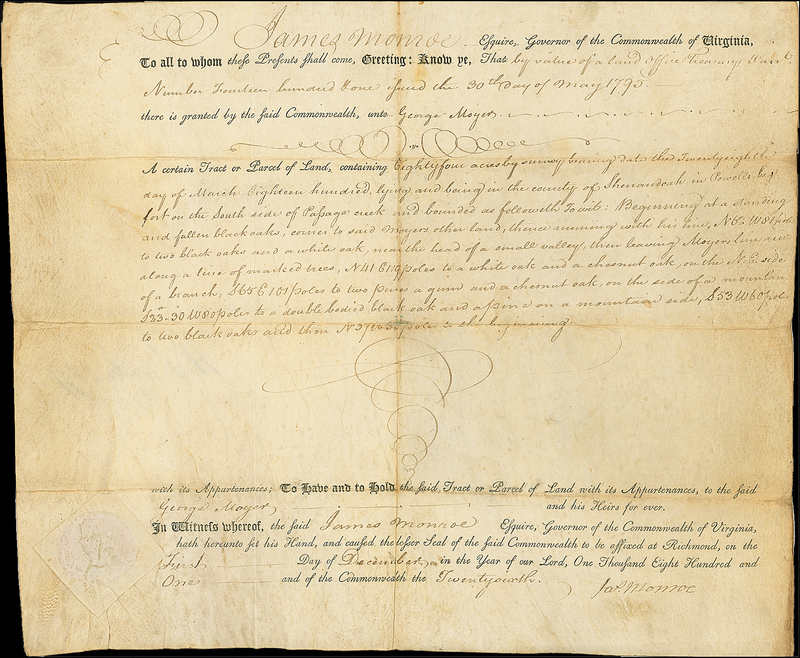 James Monroe Esquire, Governor of the Commonwealth of Virginia,
To all to whom these Presents shall come, Greeting: Know ye, That by virtue of a land office treasury Warrt.
Number Fourteen hundred & one issued the 30th day of May 1795.
there is granted by the said Commonwealth, unto George Moyer
A certain Tract or Parcel of Land, containing Eightyfour acres by survey bearing date the Twentyeighth
day of March Eighteen hundred, lying and being in the county of Shenandoah in Powells big
fort on the South side of Passage creek and bounded as followeth To wit: Beginning at a standing
and fallen black oaks, corner to said Moyers other land, thence running with his line, poles
to two black oaks and a white oak, near the head of a small valley, then leaving Moyers line and
along a line of marked trees, N41E110 poles to a white oak and a chesnut oak, on the N.E. side
of a branch, S65E101 poles to two pines a gum and a chesnut oak, on the side of a mountain
S33-30W80 poles to a double bodied black oak and a pine on a mountain side, S53W60 poles
to two black oaks and then poles to the beginning.
with its Appurtenances; To Have and to Hold the said Tract or Parcel of Land with its Appurtenances, to the said
George Moyer and his Heirs for ever.
In Witness whereof, the said James Monroe Esquire, Governor of the Commonwealth of Virginia,
hath hereunto set his Hand, and caused the lesser Seal of the said Commonwealth to be affixed at Richmond, on the
First Day of December in the Year of our Lord, One Thousand Eight Hundred and
One and of the Commonwealth the Twentysixth.
Jas. Monroe